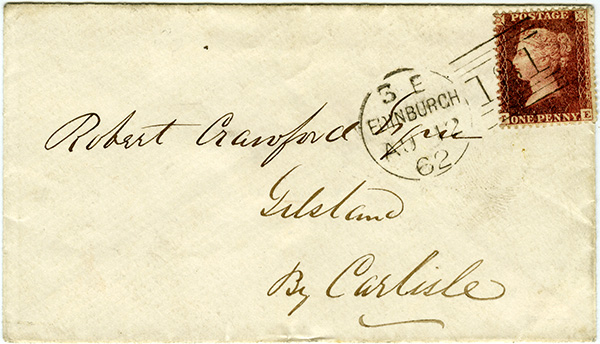 POSTAGE
ONE PENNY
E
3 E
EDINBURGH
AU 12
62
131
Robert Crawford Esqre
Gilsland
By Carlisle